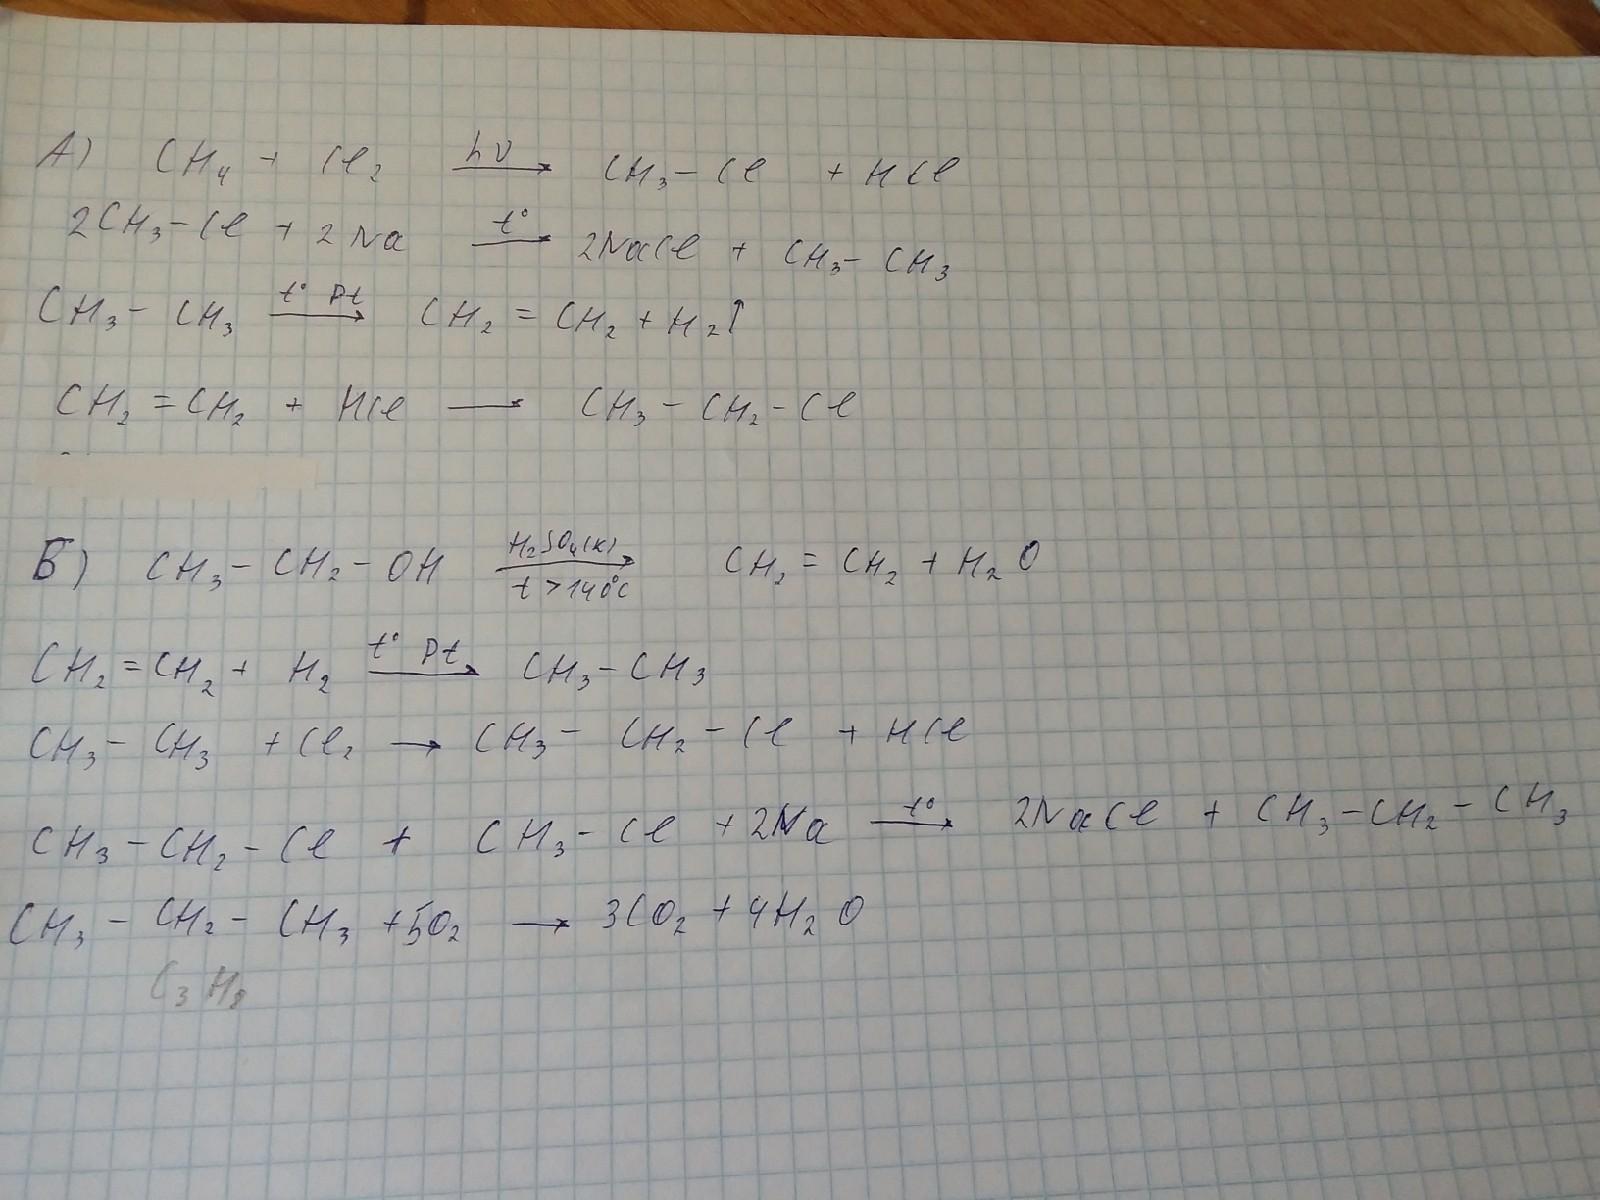 А) CH₄ + Cl₂ hν→ CH₃–Cl + HCl
2CH₃–Cl + 2Na t°→ 2NaCl + CH₃–CH₃
CH₃–CH₃ t° Pt→ CH₂=CH₂ + H₂↑
CH₂=CH₂ + HCl → CH₃–CH₂–Cl
Б) CH₃–CH₂–OH H₂SO₄(к)→ t>140°C CH₂=CH₂ + H₂O
CH₂=CH₂ + H₂ t° Pt→ CH₃–CH₃
CH₃–CH₃ + Cl₂ → CH₃–CH₂–Cl + HCl
CH₃–CH₂–Cl + CH₃–Cl + 2Na t°→ 2NaCl + CH₃–CH₂–CH₃
CH₃–CH₂–CH₃ + 5O₂ → 3CO₂ + 4H₂O
C₃H₈